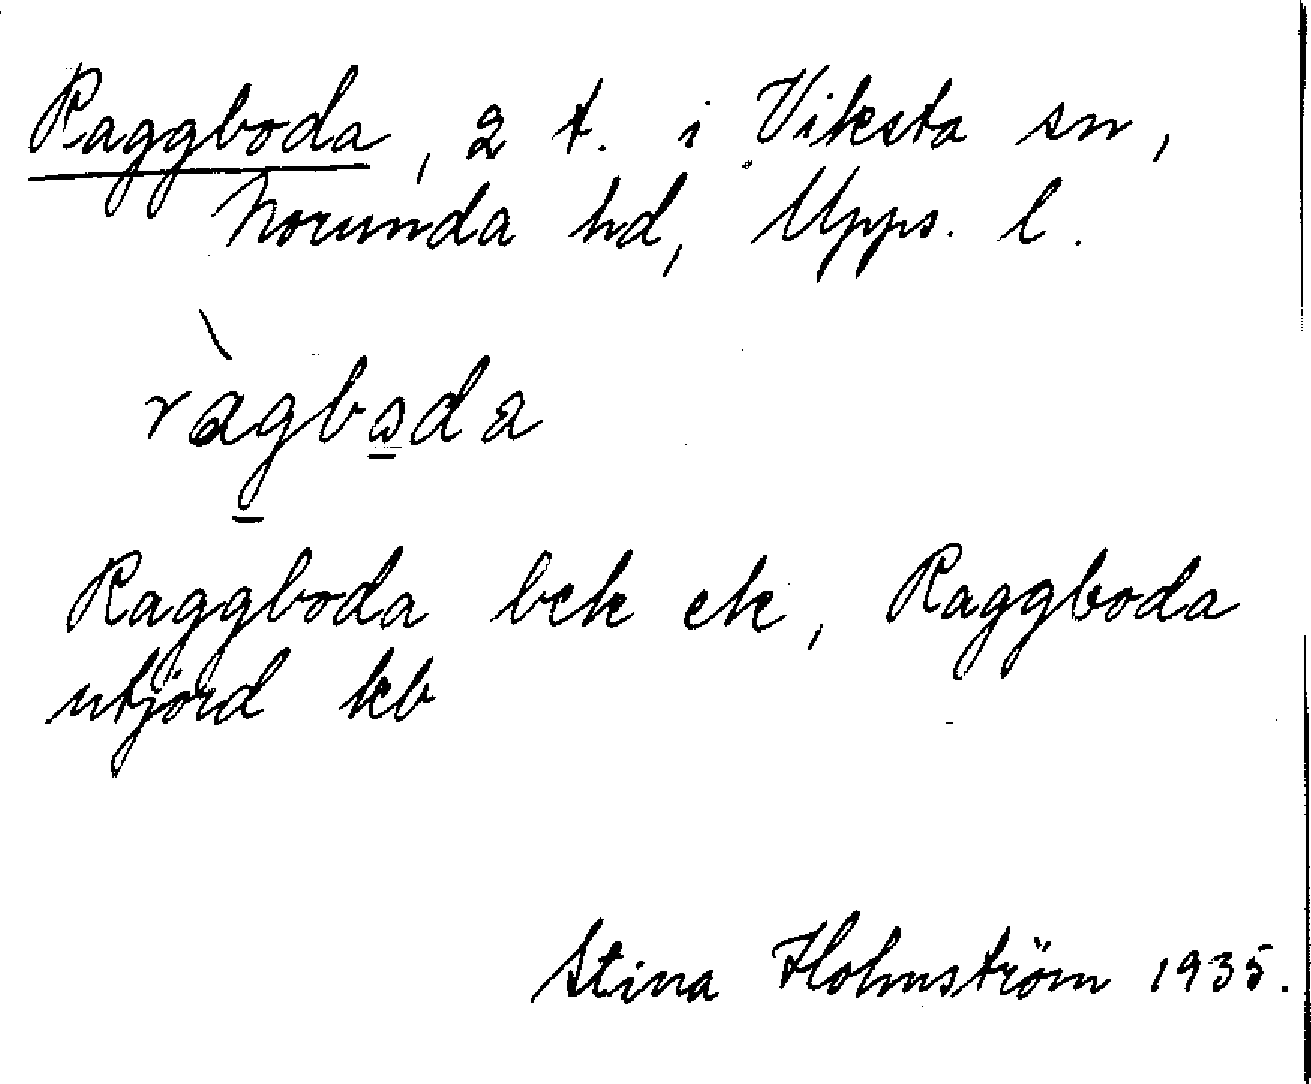 Raggboda, 2 t. i Viksta sn,
Norunda hd, Upps. l.
ràgbⱺda
Raggboda bek ek, Raggboda
utjord kb
Stina Holmström 1935.